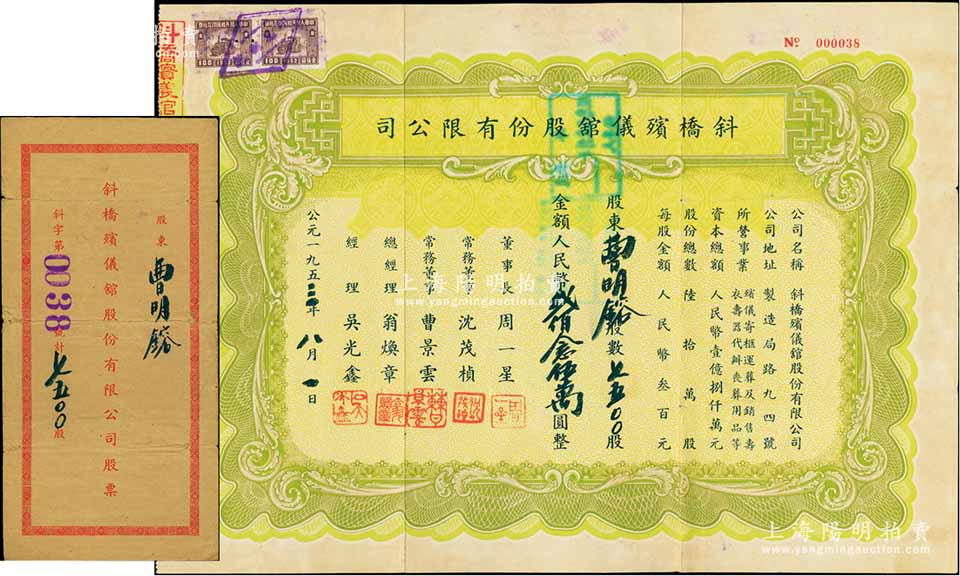 Nº 000038
斜橋殯儀館
斜橋殯儀舘股份有限公司
公司名稱 斜橋殯儀舘股份有限公司
公司地址 製造局路九四號
所營事業 殯儀寄柩運葬及銷售壽衣壽器代辦喪葬用品等
資本總額 人民幣壹億捌仟萬元
股份總數 陸拾萬股
每股金額 人民幣叁百元
股東曹明鎔股數七五〇〇股
金額人民幣貳佰念伍萬圓整
董事長 周一星
常務董事 沈茂楨
常務董事 曹景雲
總經理 翁煥章
經理 吳光鑫
公元一九五三年八月一日
股東 曹明鎔
斜橋殯儀舘股份有限公司股票
斜字第0038號計七五〇〇股
上海陽明拍賣
上海陽明拍賣
www.yangmingauction.com